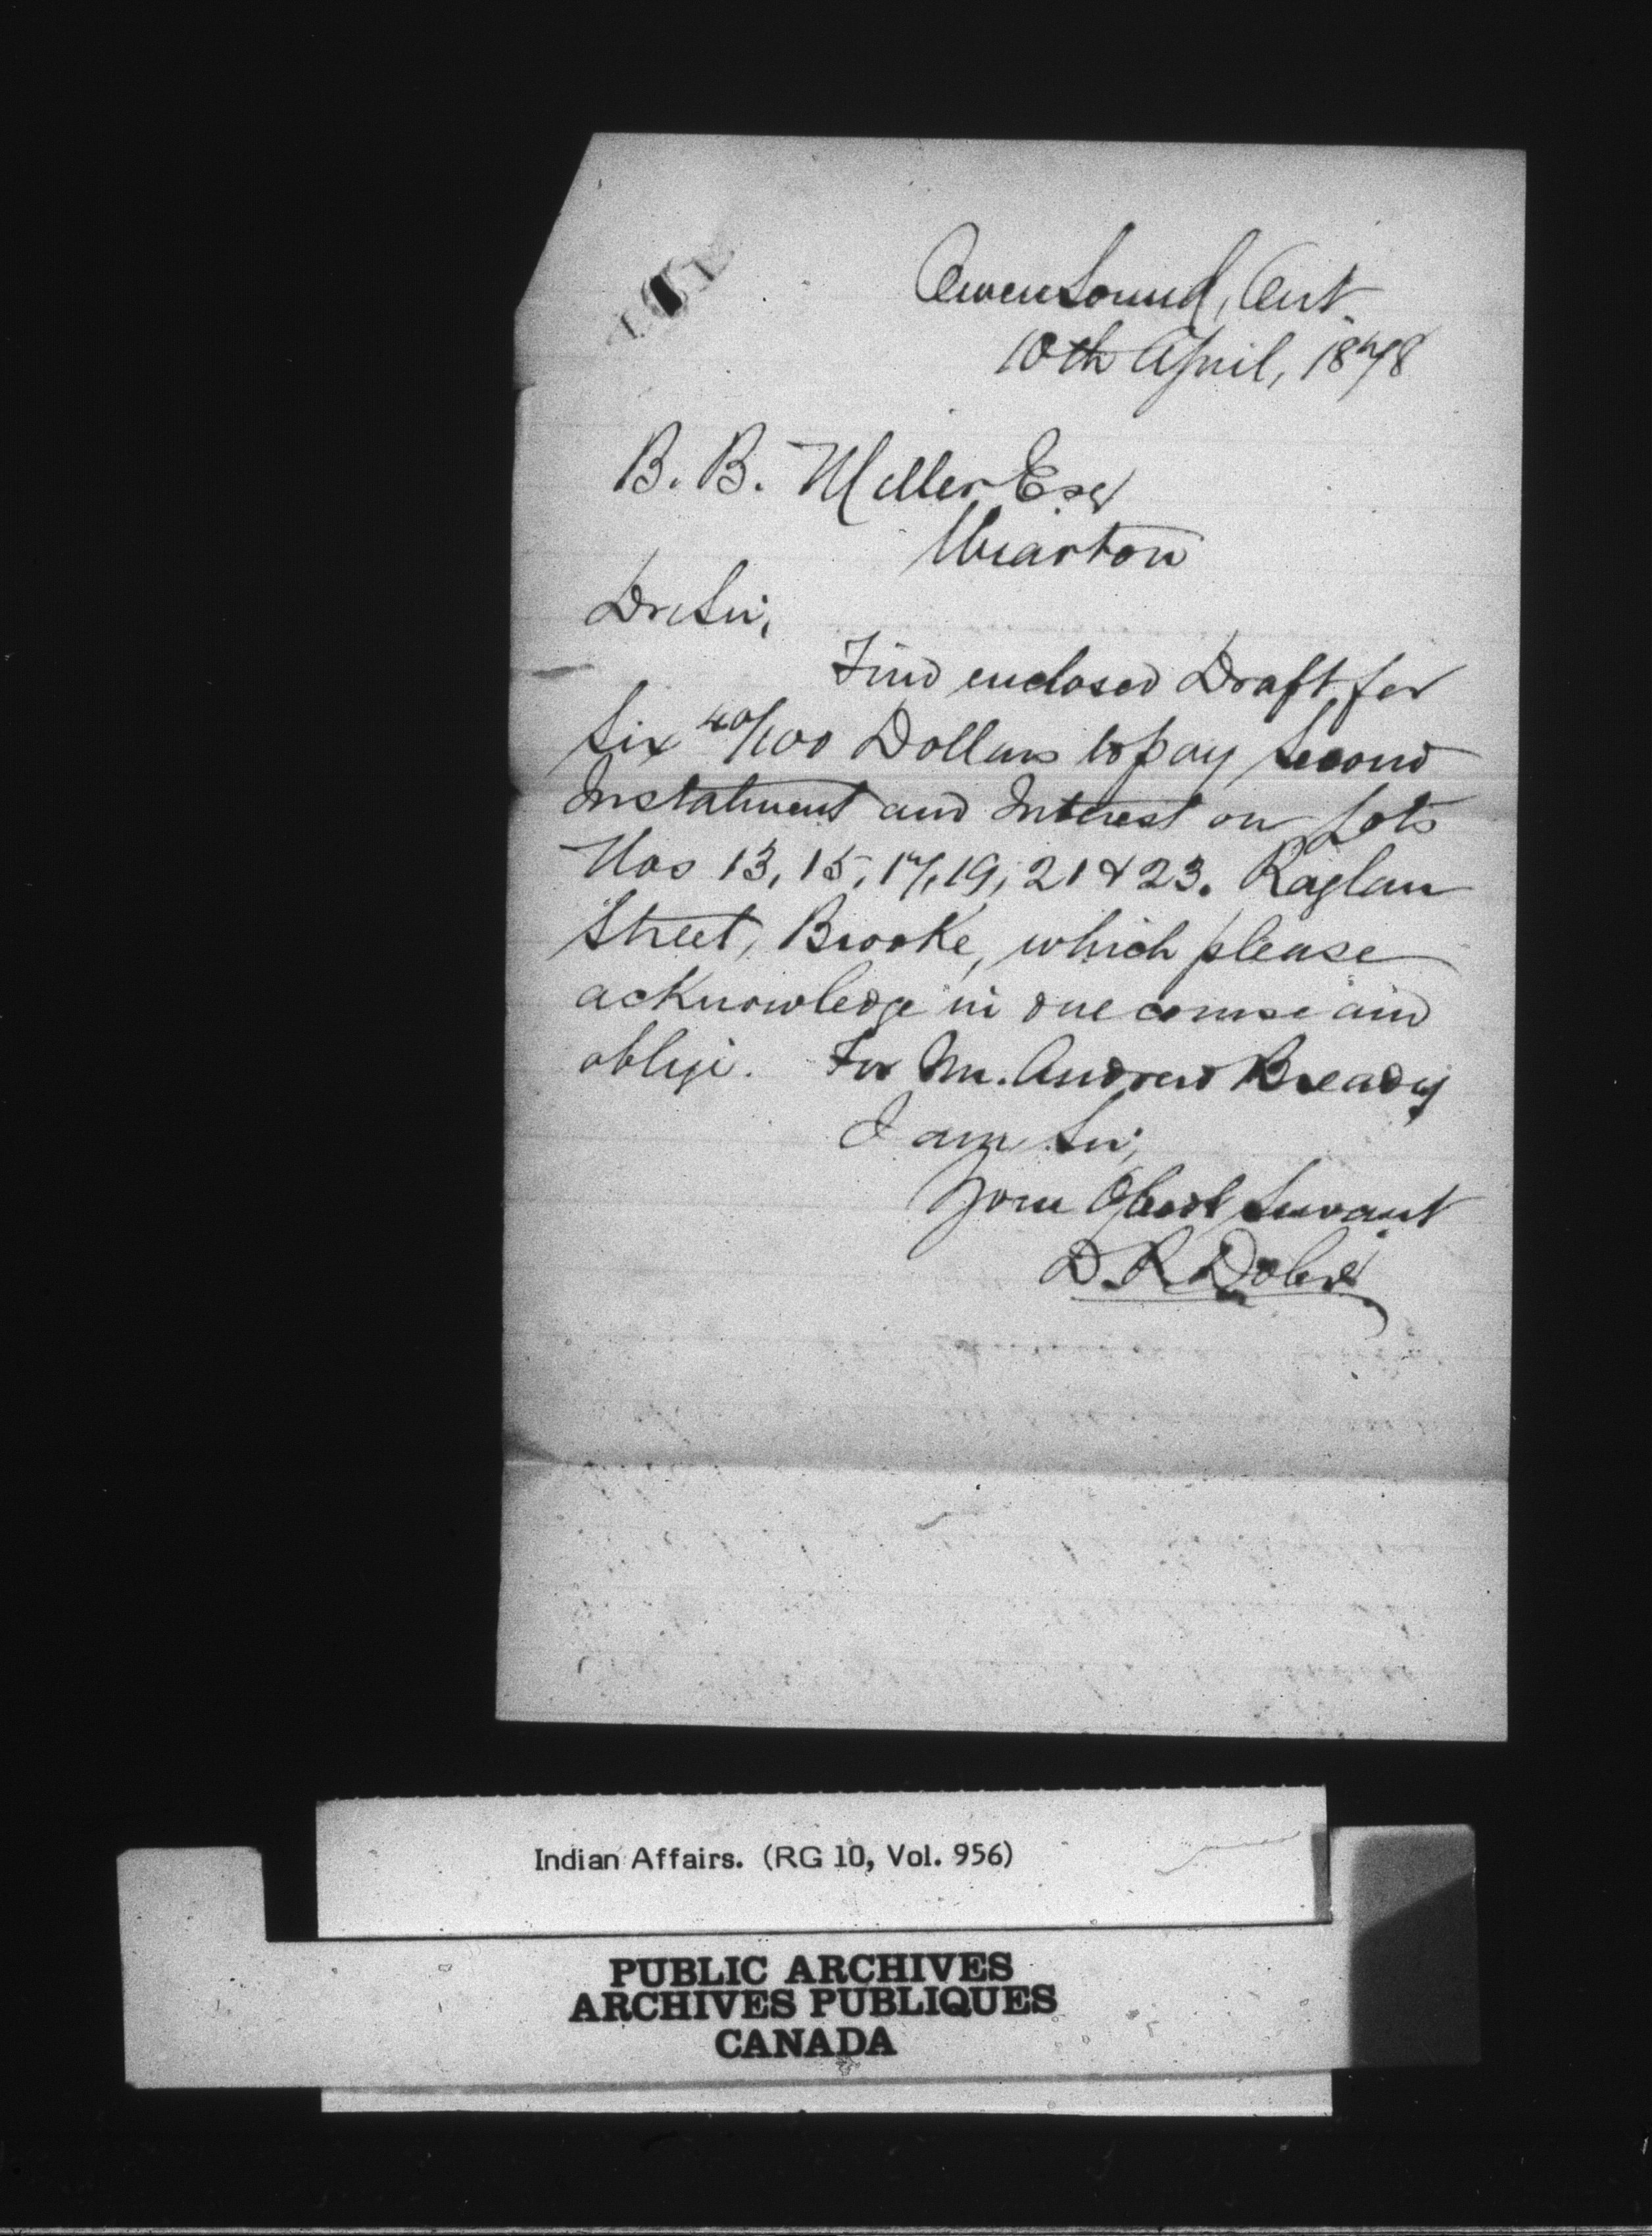 Owen Sound, Ont.
10th April, 1878
B. B. Miller Esq
Wiarton
Dr Sir,
Find enclosed Draft for
Six 40/100 Dollars to pay Second
Instalment and Interest on Lots
Nos 13, 15, 17, 19, 21 & 23. Raglan
Street, Brooke, which please
acknowledge in due course and
oblige. For Mr. Andrew Bready
I am Sir,
Your Obedt Servant
D. R. Dobie
Indian Affairs. (RG 10, Vol. 956)
PUBLIC ARCHIVES
ARCHIVES PUBLIQUES
CANADA